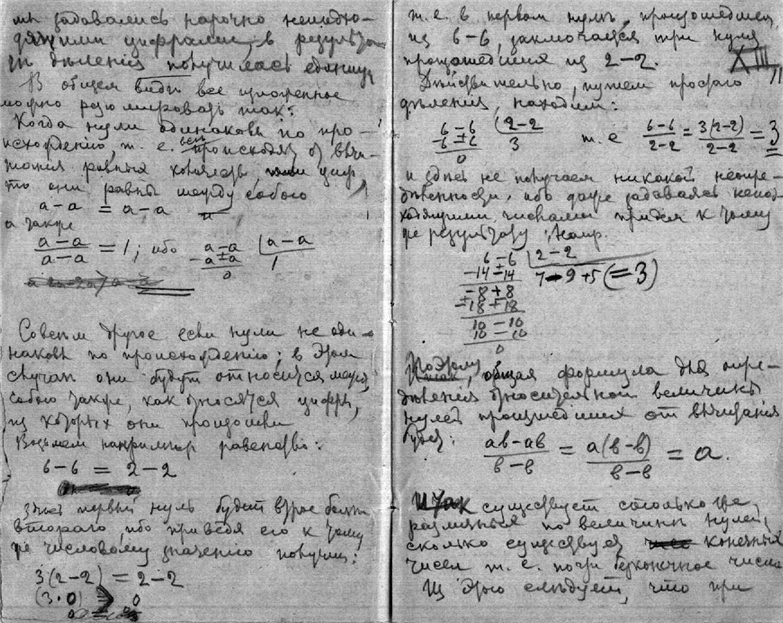 мы задавались нарочно неподхо-
дящими цифрами, в результа-
те деленiя получилась единица
В общем виде все изложенное
можно резюмировать так:
Когда нули одинаковы по про-
исхожденiю, т. е. происходят от вычи-
танiя равных количеств или цифр,
то они равны между собою
a – a = a – a
а также
a–a / a–a = 1; ибо a–a | a–a
–a±a 1
0
Совсем другое если нули не оди-
наковы по происхожденiю; в этом
случае они будут относится между
собою также, как относятся цифры,
из которых они произошли
Возьмем например равенство:
6–6 = 2–2
Здесь первый нуль будет втрое больше
второго, ибо приведя его к тому
же числовому значенiю получим:
3(2–2) = 2–2
(3·0) > 0
т. е. в первом нуле, происшедшем
из 6–6, заключается три нуля
происшедшия из 2–2.
XIII
Действительно, путем простого
деленiя, находим:
6–6 | 2–2
–6±6 3
0
т. е 6–6 / 2–2 = 3(2–2) / 2–2 = 3
и здесь не получаем никакой неопре-
деленности, ибо даже задаваясь непод-
ходящими числами придем к тому
же результату, напр.
6–6 | 2–2
–14±14 7–9+5 (=3)
–8+8
±18–18
10–10
10–10
0
Поэтому, общая формула для опре-
деленiя относительной величины
нулей происшедших от вычитанiя
будет:
ab–ab / b–b = a(b–b) / b–b = a.
Итак существует столько же
различных по величине нулей,
сколько существует конечных
чисел т. е. почти безконечное число
Из этого следует, что при